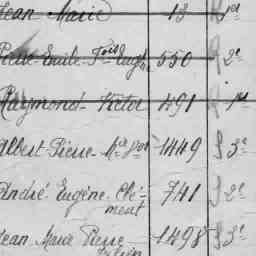 Jean Marie 13 1er
Pierre Emile Fois Eugne 550 2e
Raymond Victor 491 1er
Albert Pierre Mie 1449 3e
André Eugène Clé- 741 2e
ment
Jean Marie Pierre 1498 3e